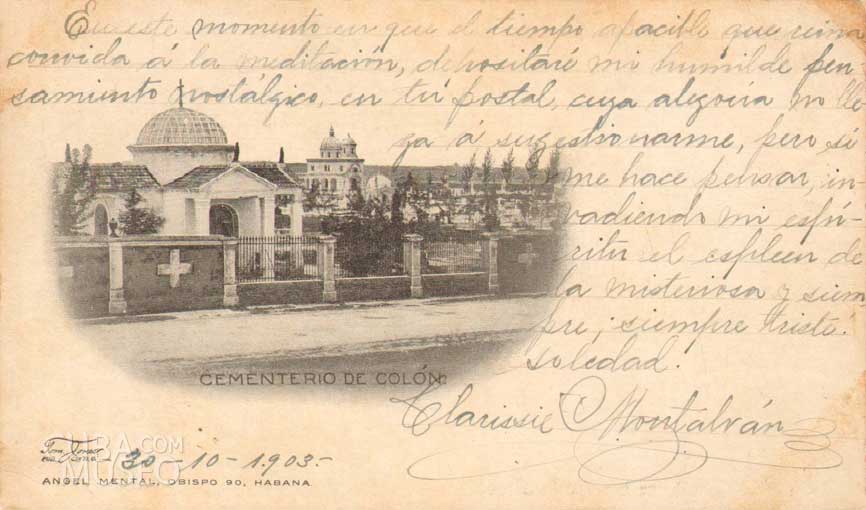 En este momento en que el tiempo apacible que reina
convida á la meditación, depositaré mi humilde pen-
samiento nostálgico, en tu postal, cuya alegoria no lle
ga á sugestionarme, pero si
me hace pensar, in-
vadiendo mi espí-
ritu el espleen de
la misteriosa y siem
pre, siempre triste
soledad.
Clarissie Montalván
CEMENTERIO DE COLÓN
30-10-1903.-
ANGEL MENTAL, OBISPO 90, HABANA